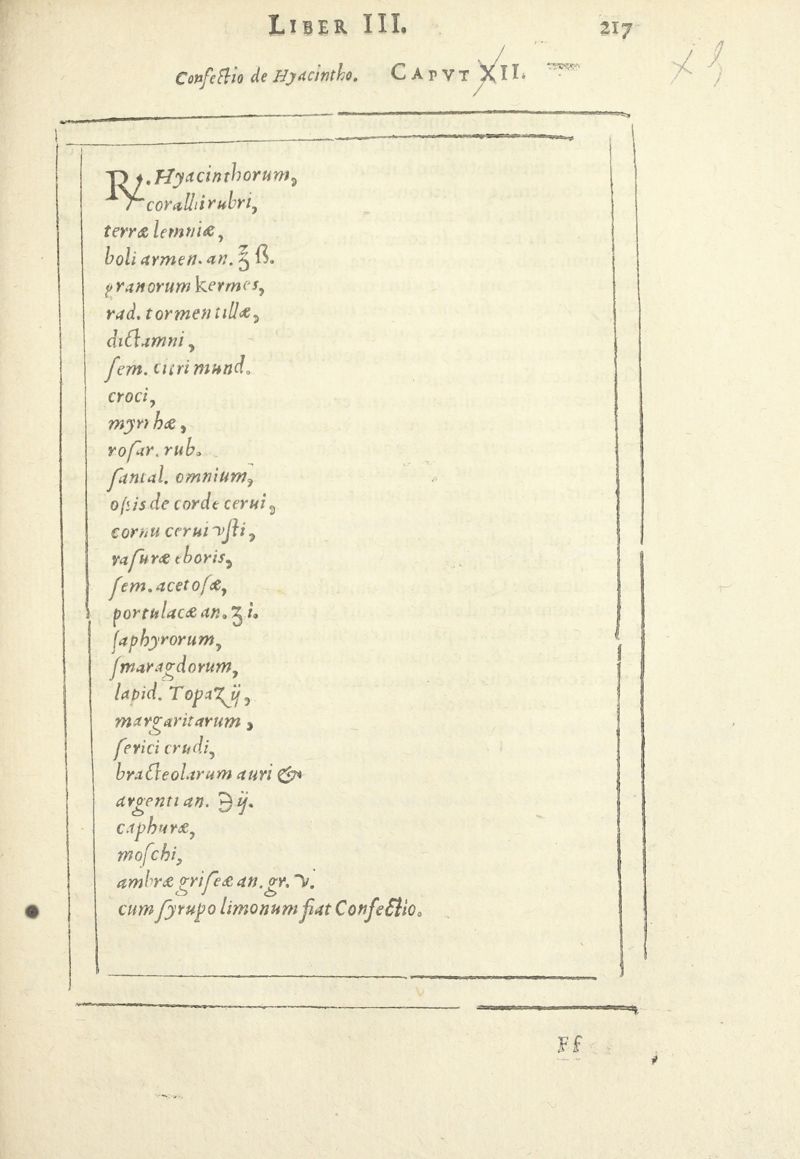 LIBER III. 217
Confectio de Hyacintho. CAPVT XII.
℞. Hyacinthorum,
corallii rubri,
terræ lemniæ,
boli armen. an. ʒ ß.
granorum kermes,
rad. tormentillæ,
dictamni,
ſem. citri mund.
croci,
myrrhæ,
roſar. rub.
ſantal. omnium,
oſsis de corde cerui,
cornu cerui vſti,
raſuræ eboris,
ſem. acetoſæ,
portulacæ an. ʒ i.
ſaphyrorum,
ſmaragdorum,
lapid. Topazij,
margaritarum,
ſerici crudi,
bracteolarum auri &
argenti an. ℈ ij.
caphuræ,
moſchi,
ambræ griſeæ an. gr. v.
cum ſyrupo limonum fiat Confectio.
Ff